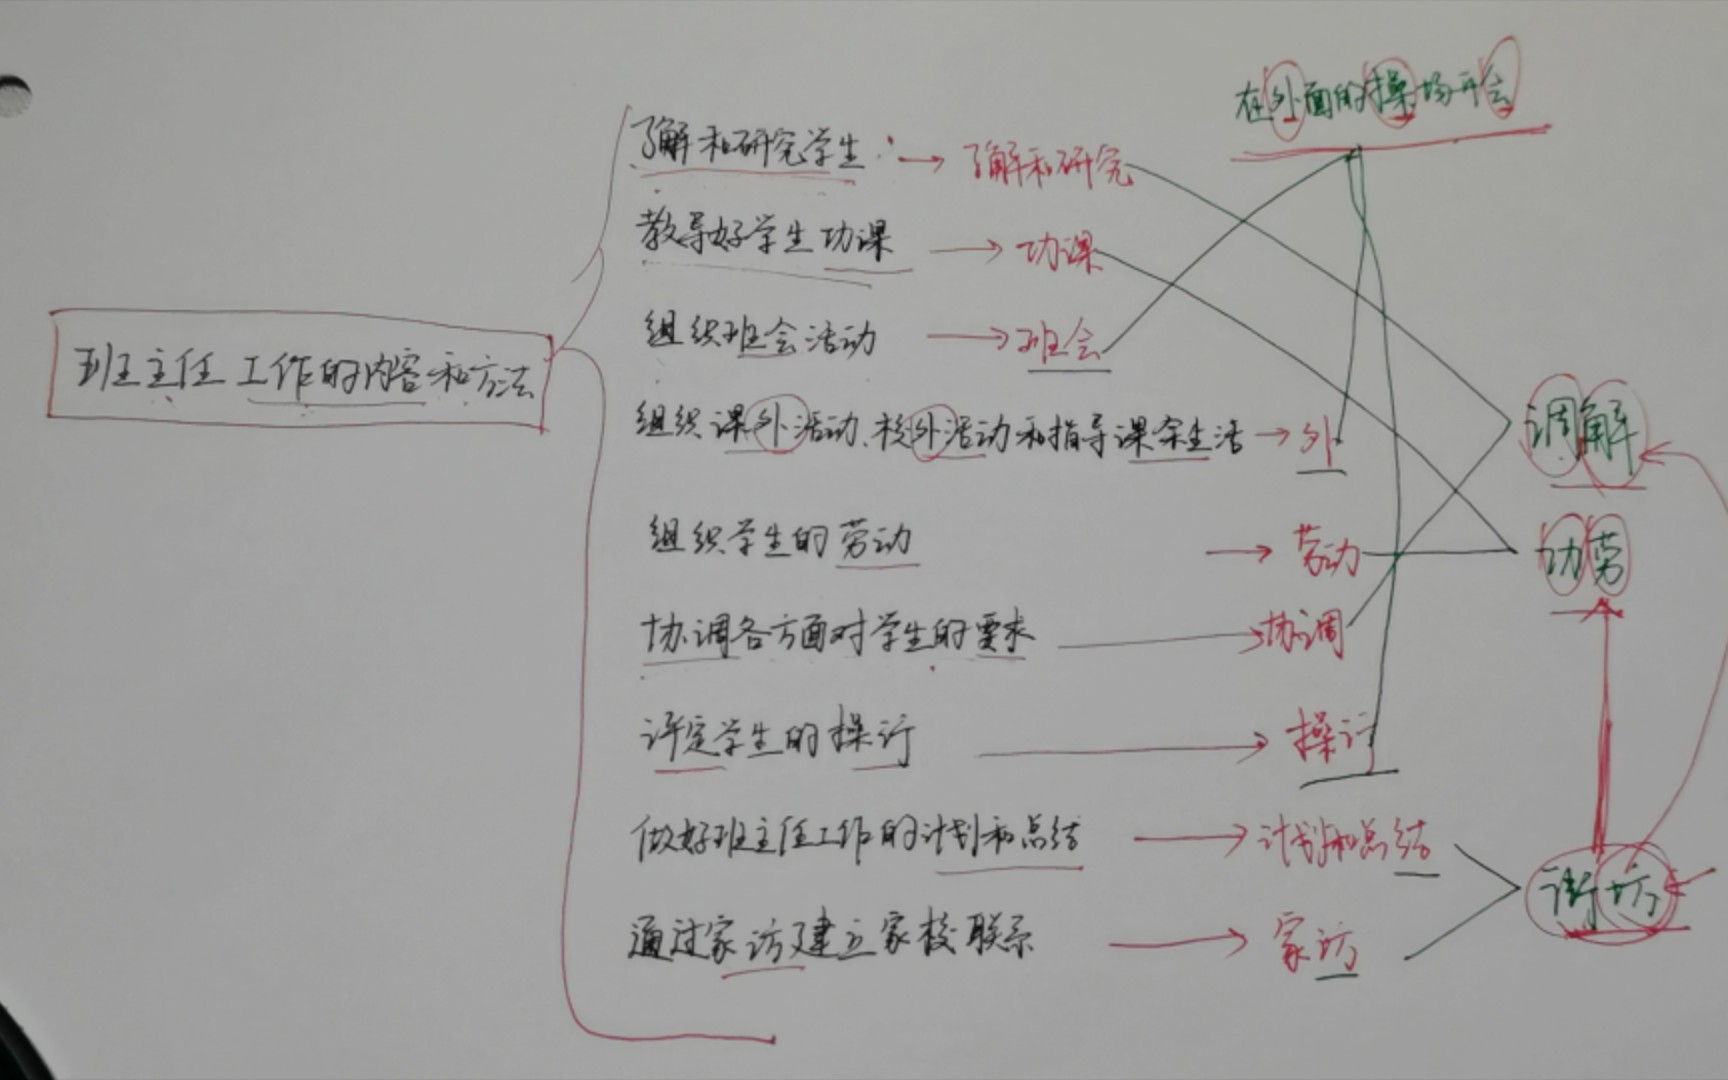 在外面的操场开会
了解和研究学生 → 了解和研究
教导好学生功课 → 功课
组织班会活动 → 班会
班主任工作的内容和方法
组织课外活动、校外活动和指导课余生活 → 外
调解
组织学生的劳动 → 劳动
功劳
协调各方面对学生的要求 → 协调
评定学生的操行 → 操行
做好班主任工作的计划和总结 → 计划和总结
街坊
通过家访建立家校联系 → 家访